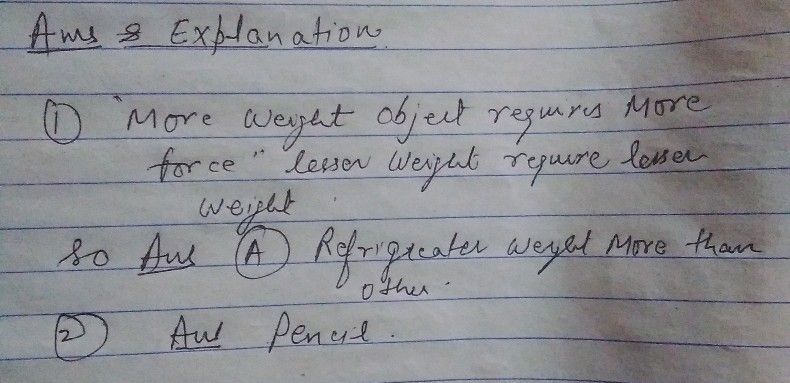 Ans & Explanation
① "More weight object requires More
force" lesser weight require lesser
weight.
So Ans Ⓐ Refrigreater weight More than
other.
② Ans Pencil.